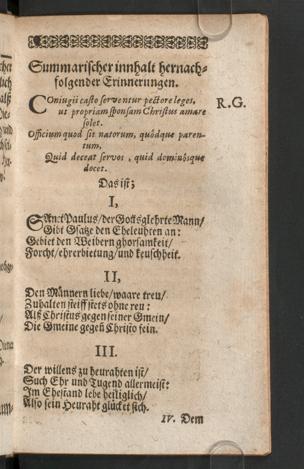 Summarischer innhalt hernach-
folgender Erinnerungen.
COniugii casto serventur pectore leges,
R.G.
ut propriam sponsam Christus amare
solet.
Officium quod sit natorum, quódque paren-
tum,
Quid deceat servos, quid dominósque
docet.
Das ist;
I,
SAnct Paulus/ der Gotts glehrte Mann/
Gibt Gsatze den Eheleuhten an:
Gebiet den Weibern ghorsamkeit/
Forcht/ ehrerbietung/ und keuschheit.
II,
Den Männern liebe/ waare treu/
Zuhalten steiff stets ohne reu:
Alß Christus gegen seiner Gmein/
Die Gmeine gegen Christo sein.
III.
Der willens zu heurahten ist/
Such Ehr und Tugend allermeist:
Im Ehestand lebe heiliglich/
Also sein Heuraht glücket sich.
IV. Dem